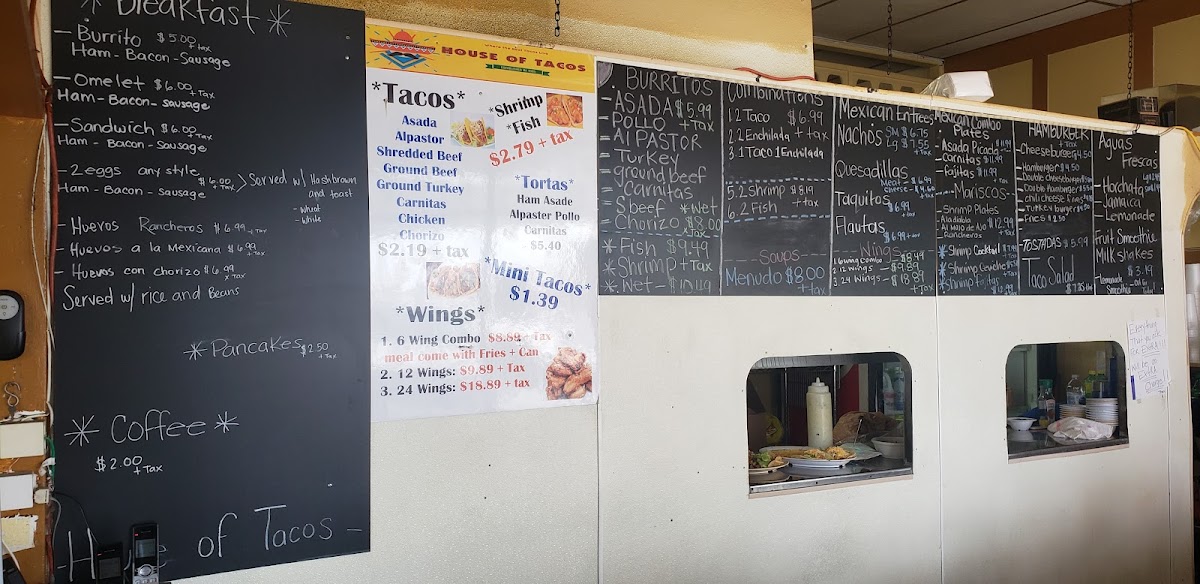 * Breakfast *
- Burrito $5.00 + tax
Ham - Bacon - Sausage
- Omelet $6.00 + Tax
Ham - Bacon - sausage
- Sandwich $6.00 + Tax
Ham - Bacon - Sausage
- 2 eggs any style $6.00 + Tax > Served w/ Hashbrown and toast
Ham - Bacon - sausage
- wheat
- white
- Huevos Rancheros $6.99 + Tax
- Huevos a la Mexicana $6.99 + Tax
- Huevos con chorizo $6.99 + Tax
Served w/ rice and Beans
* Pancakes $2.50 + Tax
* Coffee *
$2.00 + Tax
of Tacos -
HOUSE OF TACOS
*Tacos*
Asada
Alpastor
Shredded Beef
Ground Beef
Ground Turkey
Carnitas
Chicken
Chorizo
$2.19 + tax
*Shrimp
*Fish
$2.79 + tax
*Tortas*
Ham Asade
Alpaster Pollo
Carnitas
$5.40
*Mini Tacos*
$1.39
*Wings*
1. 6 Wing Combo $8.89 + Tax
meal come with Fries + Can
2. 12 Wings: $9.89 + Tax
3. 24 Wings: $18.89 + tax
BURRITOS
- ASADA $5.99
- POLLO + Tax
= Al PASTOR
= Turkey
= ground beef
= Carnitas
= S beef * Wet
- Chorizo $8.00
* Fish $9.49
* Shrimp + Tax
* Wet - 10.49
Combinations
1.2 Taco $6.99
2.2 Enchilada + tax
3.1 Taco 1 Enchilada
5.2 Shrimp $8.19
6.2 Fish + tax
Soups
Menudo $8.00 + Tax
Mexican Entrees
Nachos SM $6.75
Lg $7.55 + Tax
Quesadillas
Meat
cheese - $4.60 + Tax
Taquitos $6.99 + tax
Flautas $6.99 + Tax
- Wings -
1. 6 wing Combo $8.49
2. 12 wings - $9.89
3. 24 Wings - $18.89 + Tax
Mexican Combo Plates
- Asada Picado $11.99
- Carnitas $11.99
- Fajitas $11.99
- Mariscos -
- Shrimp Plates
Al Mojo de Ajo $12.99
Rancheros
* Shrimp Cocktail
* Shrimp Ceviche
* Shrimp Fajitas
HAMBURGER + Tax
- Cheeseburger 4.50
- Hamburger $4.50
- Double cheeseburger
- Double Hamburger
- chili cheese fries
- Turkey burger
- Fries $2.50
- TOSTADAS $5.99
Taco Salad
Aguas Frescas
- Horchata
- Jamaica
- Lemonade
Fruit Smoothie
Milkshakes
- $3.19
Lemonade
Smoothie